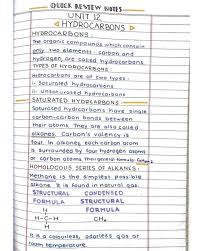 QUICK REVIEW NOTES
UNIT 12
HYDROCARBONS
HYDROCARBONS:
The organic compounds which contain
only two elements: carbon and
hydrogen, are called hydrocarbons.
TYPES OF HYDROCARBONS:
Hydrocarbons are of two types:
i. Saturated hydrocarbons
ii. Unsaturated hydrocarbons
SATURATED HYDROCARBONS
Saturated hydrocarbons have single
carbon-carbon bonds between
their atoms. They are also called
alkanes. Carbon's valency is
four. In alkanes, each carbon atom
is surrounded by four hydrogen atoms
or carbon atoms. Their general formula
HOMOLOGOUS SERIES OF ALKANES:
Methane is the simplest possible
alkane. It is found in natural gas.
STRUCTURAL CONDENSED
FORMULA STRUCTURAL
H FORMULA
H-C-H CH₄
H
It is a colourless, odorless gas at
room temperature.